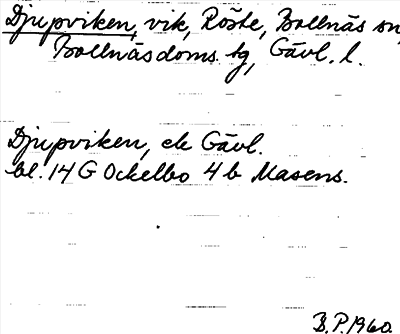 Djupviken, vik, Röste, Bollnäs sn,
Bollnäs doms. tg, Gävl. l.
Djupviken, ek Gävl.
bl. 14 G Ockelbo 4 b Masens.
B.P. 1960